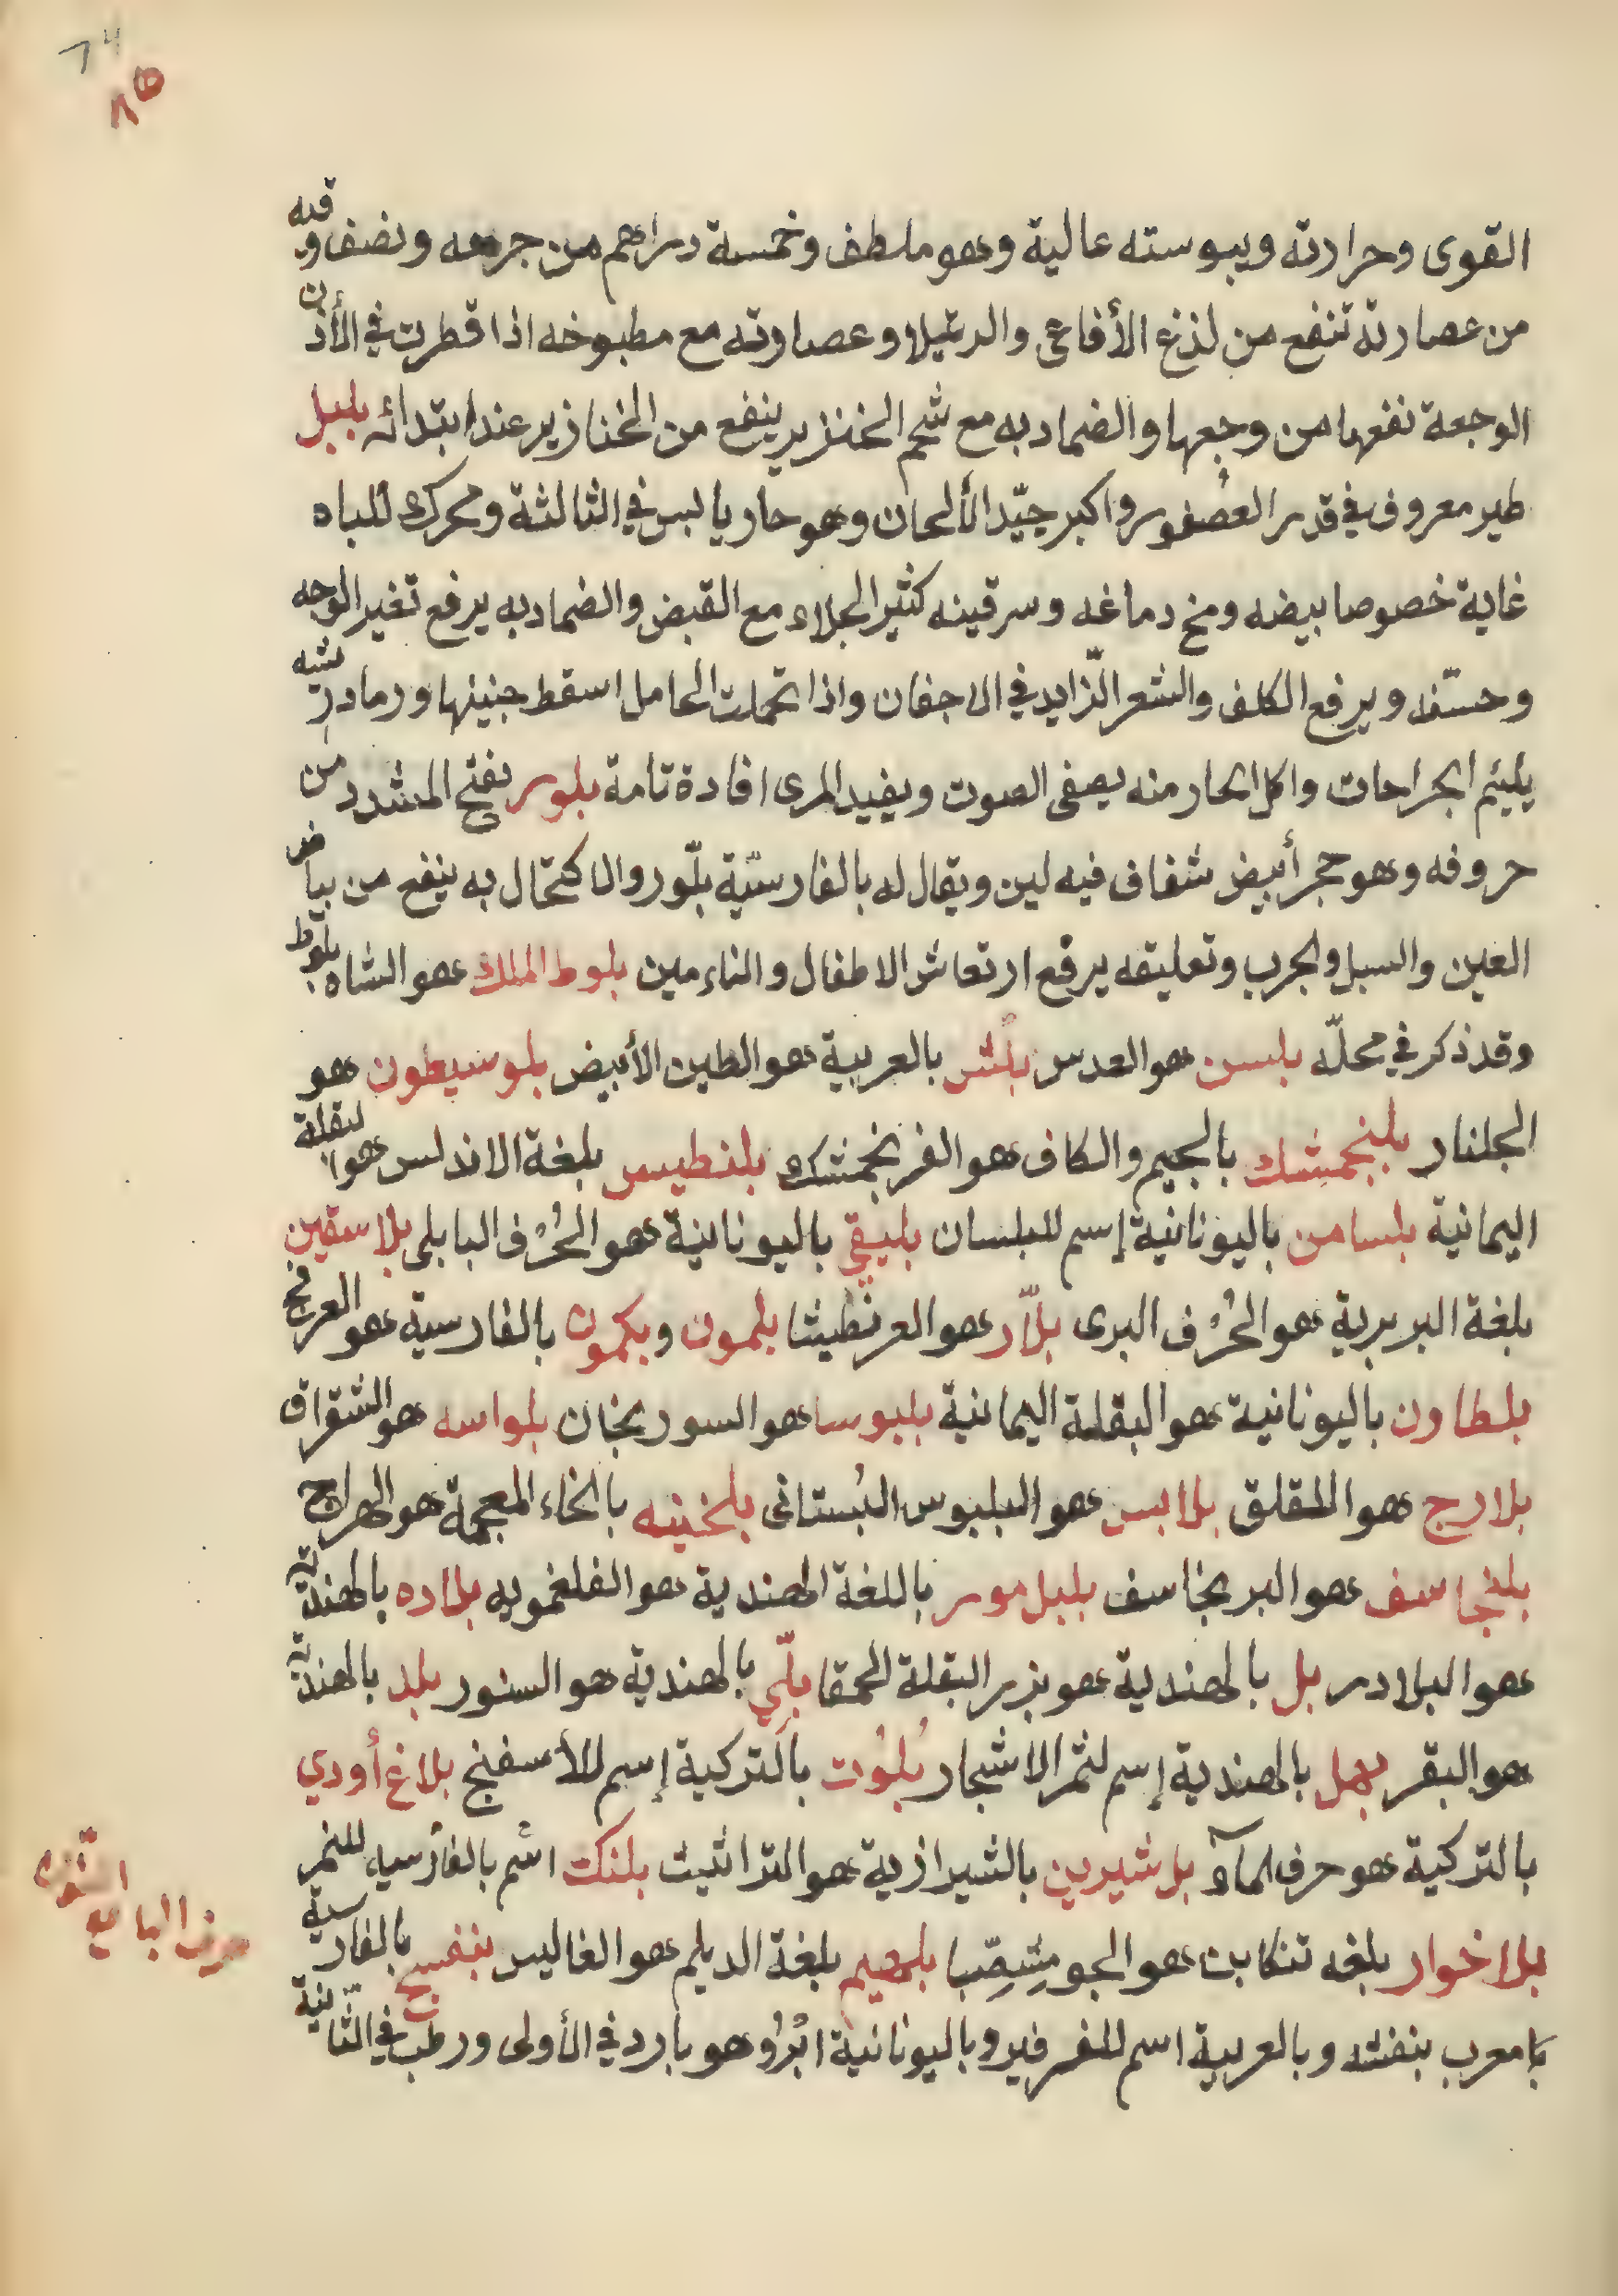 ٦٤
٨٥
القوى وحرارته ويبوسته عالية وهو ملطف وخمسة دراهم من جرمه ونصف وقيه
من عصارته تنفع من لذغ الأفاعى والرتيلا وعصارته مع مطبوخه اذا قطرت في الأذن
الوجعة نفعها من وجعها والضماد به مع شحم الخنزير ينفع من الخنازير عند ابتدائه بلبل
طير معروف في قدر العصفور واكبر جيّد الألحان وهو حار يابس في الثالثة ومحرك للباه
غاية خصوصا بيضه ومخ دماغه وسرقينه كثير الجلاء مع القبض والضماد به يرفع تغير الوجه
وحسّنه ويرفع الكلف والشعر الزّايد في الاجفان واذا تحملت الحامل اسقط جنينها ورماد ريشه
يليئم الجراحات واكل الحار منه يصفى الصوت ويفيد المرى افادة تامة بلور بفتح المشدد من
حروفه وهو حجر أبيض شفاف فيه لين ويقال له بالفارسيّة بلّور والاكتحال به ينفع من بياض
العين والسبل والجرب وتعليقه يرفع ارتعاش الاطفال والناءمين بلوط الملك هو الشاه بلوط
وقد ذكر في محلّه بلسن هو العدس بلش بالعربية هو الطين الأبيض بلوسيطون هو
الجلنار بلنجمشك بالجيم والكاف هو الفرنجمشك بلنطيس بلغة الاندلس هو البقلة
اليمانية بلسامن باليونانية إسم للبلسان بليقي باليونانية هو الحُرْف البابلى بلاسقين
بلغة البربرية هو الحُرْف البرى بلّار هو العرنطيثا بلمون وبكمون بالفارسية هو العرفج
بلطاون باليونانية هو البقلة اليمانية بلبوسا هو السوريخان بلواسه هو الشقراق
بلارج هو اللقلق بلابس هو البلبوس البُستانى بلخنيه بالخاء المعجمة هو الهرانج
بلنجاسف هو البرنجاسف بلبل مور باللغة الهندية هو الفلغمويه بلاده بالهندية
هو البلادر بل بالهندية هو بزر البقلة الحمقا بلّي بالهندية هو السنور بلد بالهندية
هو البقر بهل بالهندية إسم لثمر الاشجار بُلوُت بالتركية إسم للأسفنج بلاغ أودي
بالتركية هو حرف الماء بل شيرين بالشيرازية هو المتراثيث بلنك اسم بالفارسيه للنمر
بلاخوار بلغه تنكابن هو الجومشصّبا بلهيم بلغة الديلم هو الغاليس بنفسج بالفارسية
بامعرب بنفشه وبالعربية اسم للفرفير وباليونانية ابرُو هو بارد في الأولى ورطب في الثّانية
حرف البا مع النون